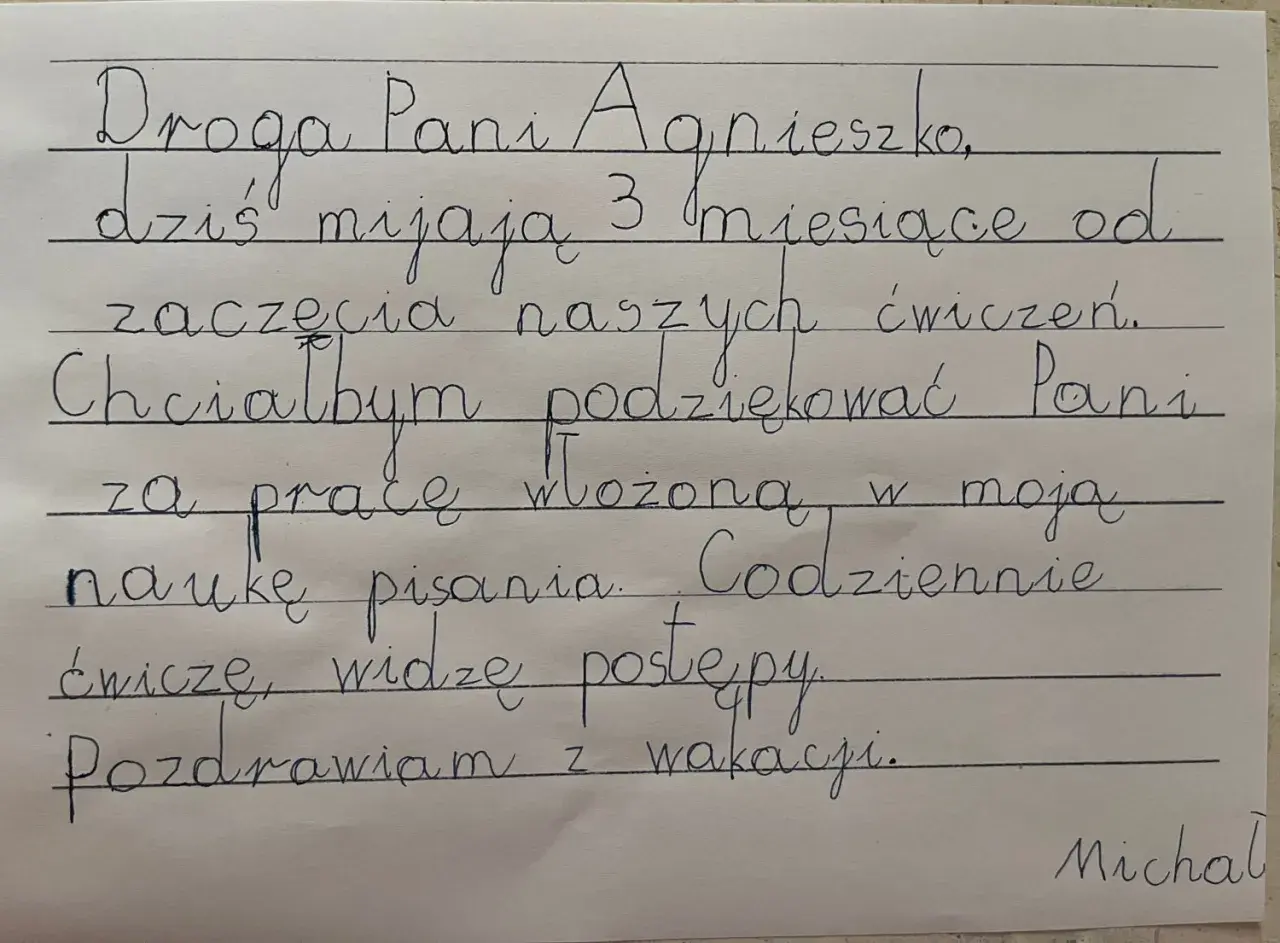 Droga Pani Agnieszko,
dziś mijają 3 miesiące od
zaczęcia naszych ćwiczeń.
Chciałbym podziękować Pani
za pracę włożoną w moją
naukę pisania. Codziennie
ćwiczę, widzę postępy.
Pozdrawiam z wakacji.
Michał